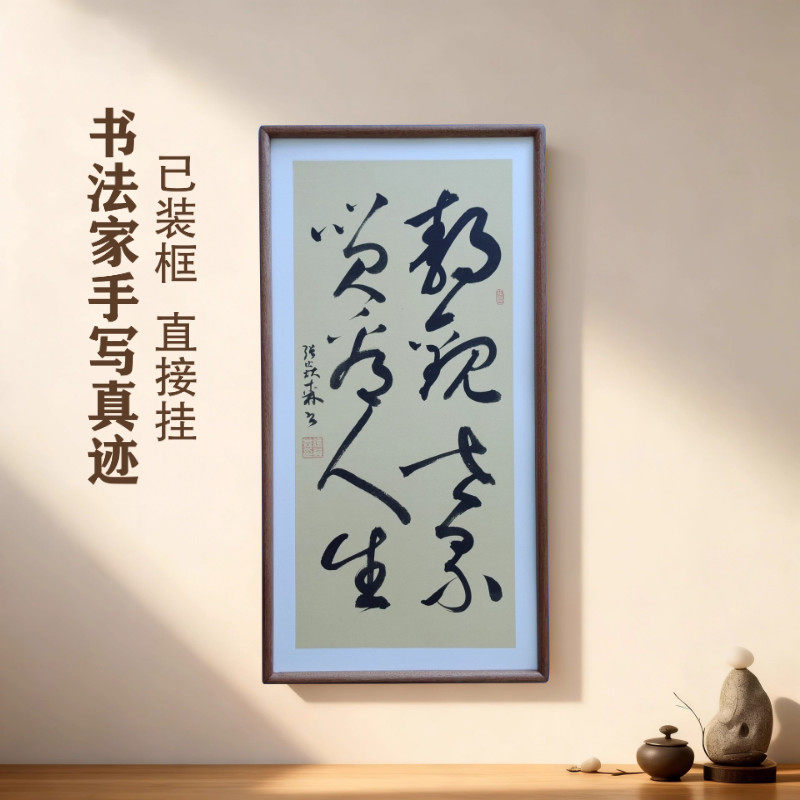 书法家手写真迹
已装框 直接挂
静观世景
笑看人生